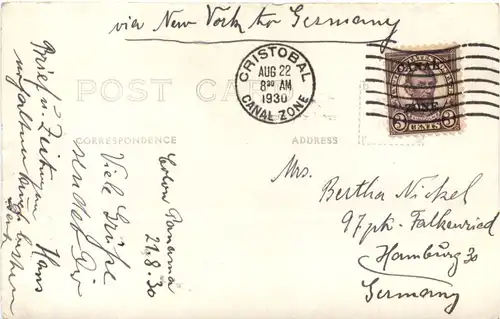 via New York to Germany
CRISTOBAL
AUG 22
8 30 AM
1930
CANAL ZONE
CANAL
ZONE
3 CENTS 3
POST CA
CORRESPONDENCE
ADDRESS
Colon Panama
21.8.30
Viele Grüße
sendet Dir
Hans
Brief u. Zeitungen
erhalten besten
Dank
Mrs.
Bertha Nickel
97 ptr. Falkenried
Hamburg 30
Germany